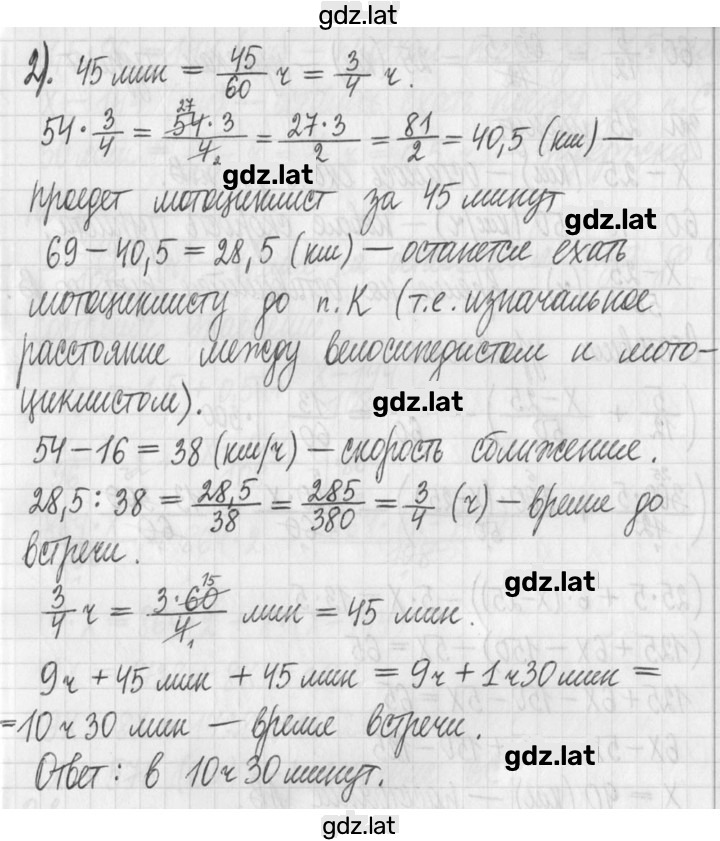 gdz.lat
2). 45 мин = 45/60 ч = 3/4 ч.
54 · 3/4 = 54 · 3/4 = 27 · 3/2 = 81/2 = 40,5 (км) —
27
2
gdz.lat
проедет мотоциклист за 45 минут
gdz.lat
69 – 40,5 = 28,5 (км) — останется ехать
мотоциклисту до п. К (т.е. изначальное
расстояние между велосипедистом и мото-
циклистом).
gdz.lat
54 – 16 = 38 (км/ч) — скорость сближения.
28,5 : 38 = 28,5/38 = 285/380 = 3/4 (ч) — время до
встречи.
gdz.lat
3/4 ч = 3 · 60/4 мин = 45 мин.
15
1
9ч + 45 мин + 45 мин = 9ч + 1ч 30 мин =
= 10 ч 30 мин — время встречи.
gdz.lat
Ответ: в 10ч 30 минут.
gdz.lat